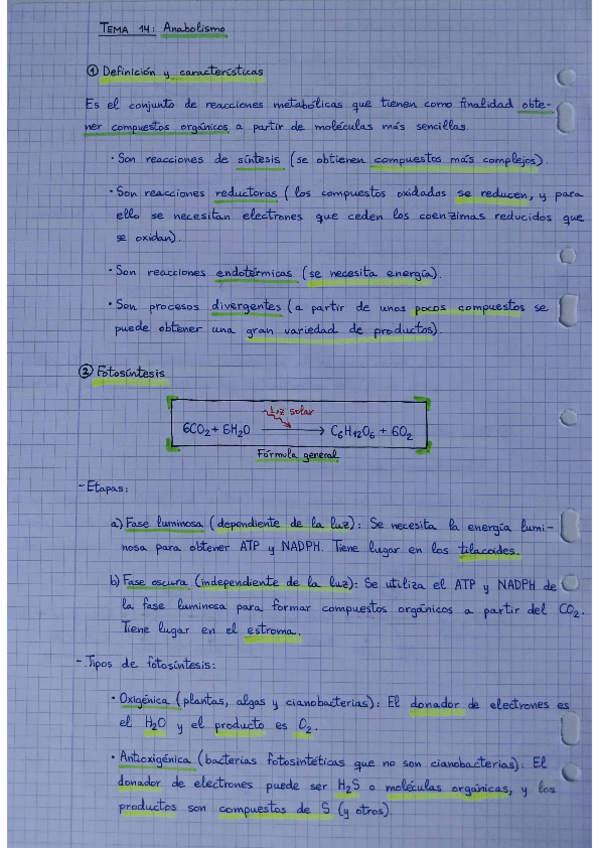 TEMA 14: Anabolismo
① Definición y características
Es el conjunto de reacciones metabólicas que tienen como finalidad obte-
ner compuestos orgánicos a partir de moléculas más sencillas.
· Son reacciones de síntesis (se obtienen compuestos más complejos).
· Son reacciones reductoras (los compuestos oxidados se reducen, y para
ello se necesitan electrones que ceden los coenzimas reducidos que
se oxidan).
· Son reacciones endotérmicas (se necesita energía).
· Son procesos divergentes (a partir de unos pocos compuestos se
puede obtener una gran variedad de productos).
② Fotosíntesis
Luz solar
6CO2 + 6H2O → C6H12O6 + 6O2
Fórmula general
- Etapas:
a) Fase luminosa (dependiente de la luz): Se necesita la energía lumi-
nosa para obtener ATP y NADPH. Tiene lugar en los tilacoides.
b) Fase oscura (independiente de la luz): Se utiliza el ATP y NADPH de
la fase luminosa para formar compuestos orgánicos a partir del CO2.
Tiene lugar en el estroma.
- Tipos de fotosíntesis:
· Oxigénica (plantas, algas y cianobacterias): El donador de electrones es
el H2O y el producto es O2.
· Anoxigénica (bacterias fotosintéticas que no son cianobacterias): El
donador de electrones puede ser H2S o moléculas orgánicas, y los
productos son compuestos de S (y otros).